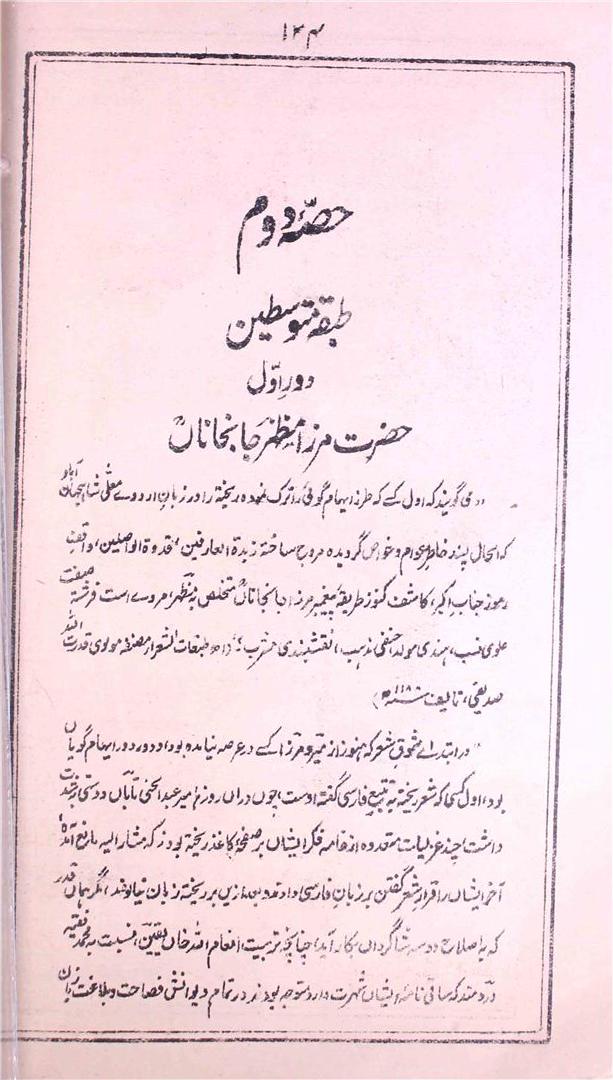 ۱۲۴
حصّۂ دوم
طبقۂ متوسطین
دورِ اوّل
حضرت مرزا مظہر جانجاناںؒ
"می گویند کہ اول کسے کہ طرز ایہام گوئی را ترک نمودہ ریختہ را در زبان اردوے معلّٰی شاہجہاں آباد
کہ الحال پسند خاطر عوام و خواص گردیدہ مروج ساختہ زبدۃ العارفین، قدوۃ الواصلین، واقف
رموز جناب اکبر، کاشف کنوز طریقۂ پیغمبر مرزا جانجاناںؒ متخلص بہ مظہرؔ، مردے است فرشتہ صفت
علوی نسب، ہندی مولد، حنفی مذہب، نقشبندی مشرب" (طبقات الشعرا، مصنفہ مولوی قدرت اللہ
صدیقی، تالیف ۱۱۸۸ھ)
"در ابتدائے شوق شعر کہ ہنوز از میر و مرزا کسے در عرصہ نیامدہ بود و دور دور ایہام گویاں
بود، اول کسی کہ شعر ریختہ بہ تتبع فارسی گفتہ اوست چوں دراں روزہا میر عبدالحئی تاباں دوستی بشدت
داشت، چند غزلیات متعددہ از خامہ فکر ایشاں بر صفحۂ کاغذ ریختہ بود کہ مشار الیہ مانع آمدہ
آخر ایشاں را قرار شعر گفتن بر زبان فارسی داد و بعد ازیں بر ریختہ زبان نیالودند، مگر ہماں قدر
کہ بہ اصلاح دو سہ شاگرداں بکار آید، چنانچہ تربیت انعام اللہ خاں یقینؔ، نسبت بہ محمد فقیہ
دردمند کہ ساقی نامۂ ایشاں شہرت دارد متوجہ بودند در تمام دیوانش فصاحت و بلاغت